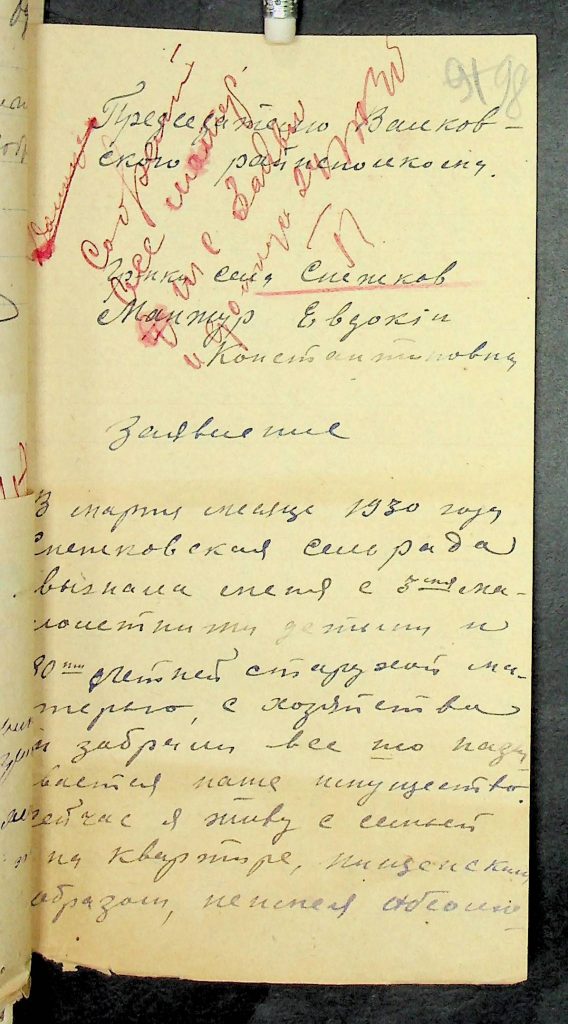 98
Председателю Валков-
ского райисполкома.
Собрать
все матер.
ж-ки села Снежков
Манжур Евдокіи
Константиновны
Заявление
В марте месяце 1930 году
Снежковская сельрада
выгнала меня с 3-мя ма-
лолетними детьми и
80-ти летней старухой ма-
терью, с хозяйства
и забрали все что назы
вается наше имущество.
сейчас я живу с семьей
на квартире, нищенским
образом, не имея абсолют